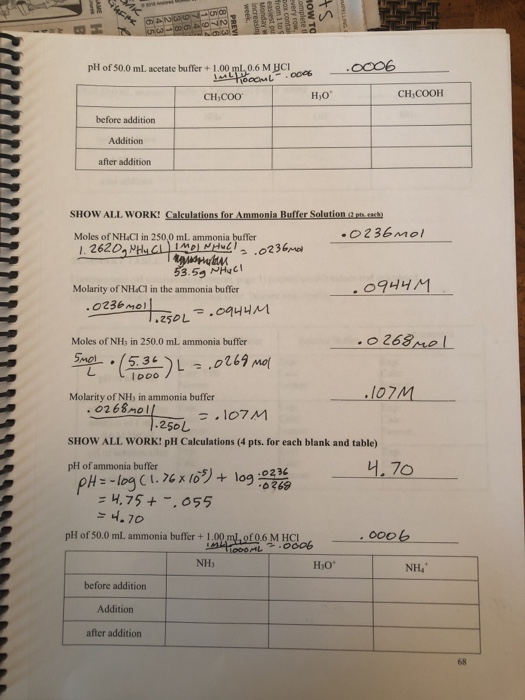 pH of 50.0 mL acetate buffer + 1.00 mL 0.6 M HCl
.0006
1mL 1000mL = .0006
CH₃COO⁻ H₃O⁺ CH₃COOH
before addition
Addition
after addition
SHOW ALL WORK! Calculations for Ammonia Buffer Solution (2 pts. each)
Moles of NH₄Cl in 250.0 mL ammonia buffer
.0236mol
1.2620g NH4Cl | 1 mol NH4Cl = .0236mol
53.5g NH4Cl
Molarity of NH₄Cl in the ammonia buffer
.0944M
.0236mol | .250L = .0944M
Moles of NH₃ in 250.0 mL ammonia buffer
.0268mol
5mol/L · (5.36/1000) L = .0269 mol
Molarity of NH₃ in ammonia buffer
.107M
.0268mol | .250L = .107M
SHOW ALL WORK! pH Calculations (4 pts. for each blank and table)
pH of ammonia buffer
4.70
pH = -log(1.76 x 10⁻⁵) + log .0236/.0268
= 4.75 + -.055
= 4.70
pH of 50.0 mL ammonia buffer + 1.00 mL of 0.6 M HCl
.0006
1mL 1000mL = .0006
NH₃ H₃O⁺ NH₄⁺
before addition
Addition
after addition
68